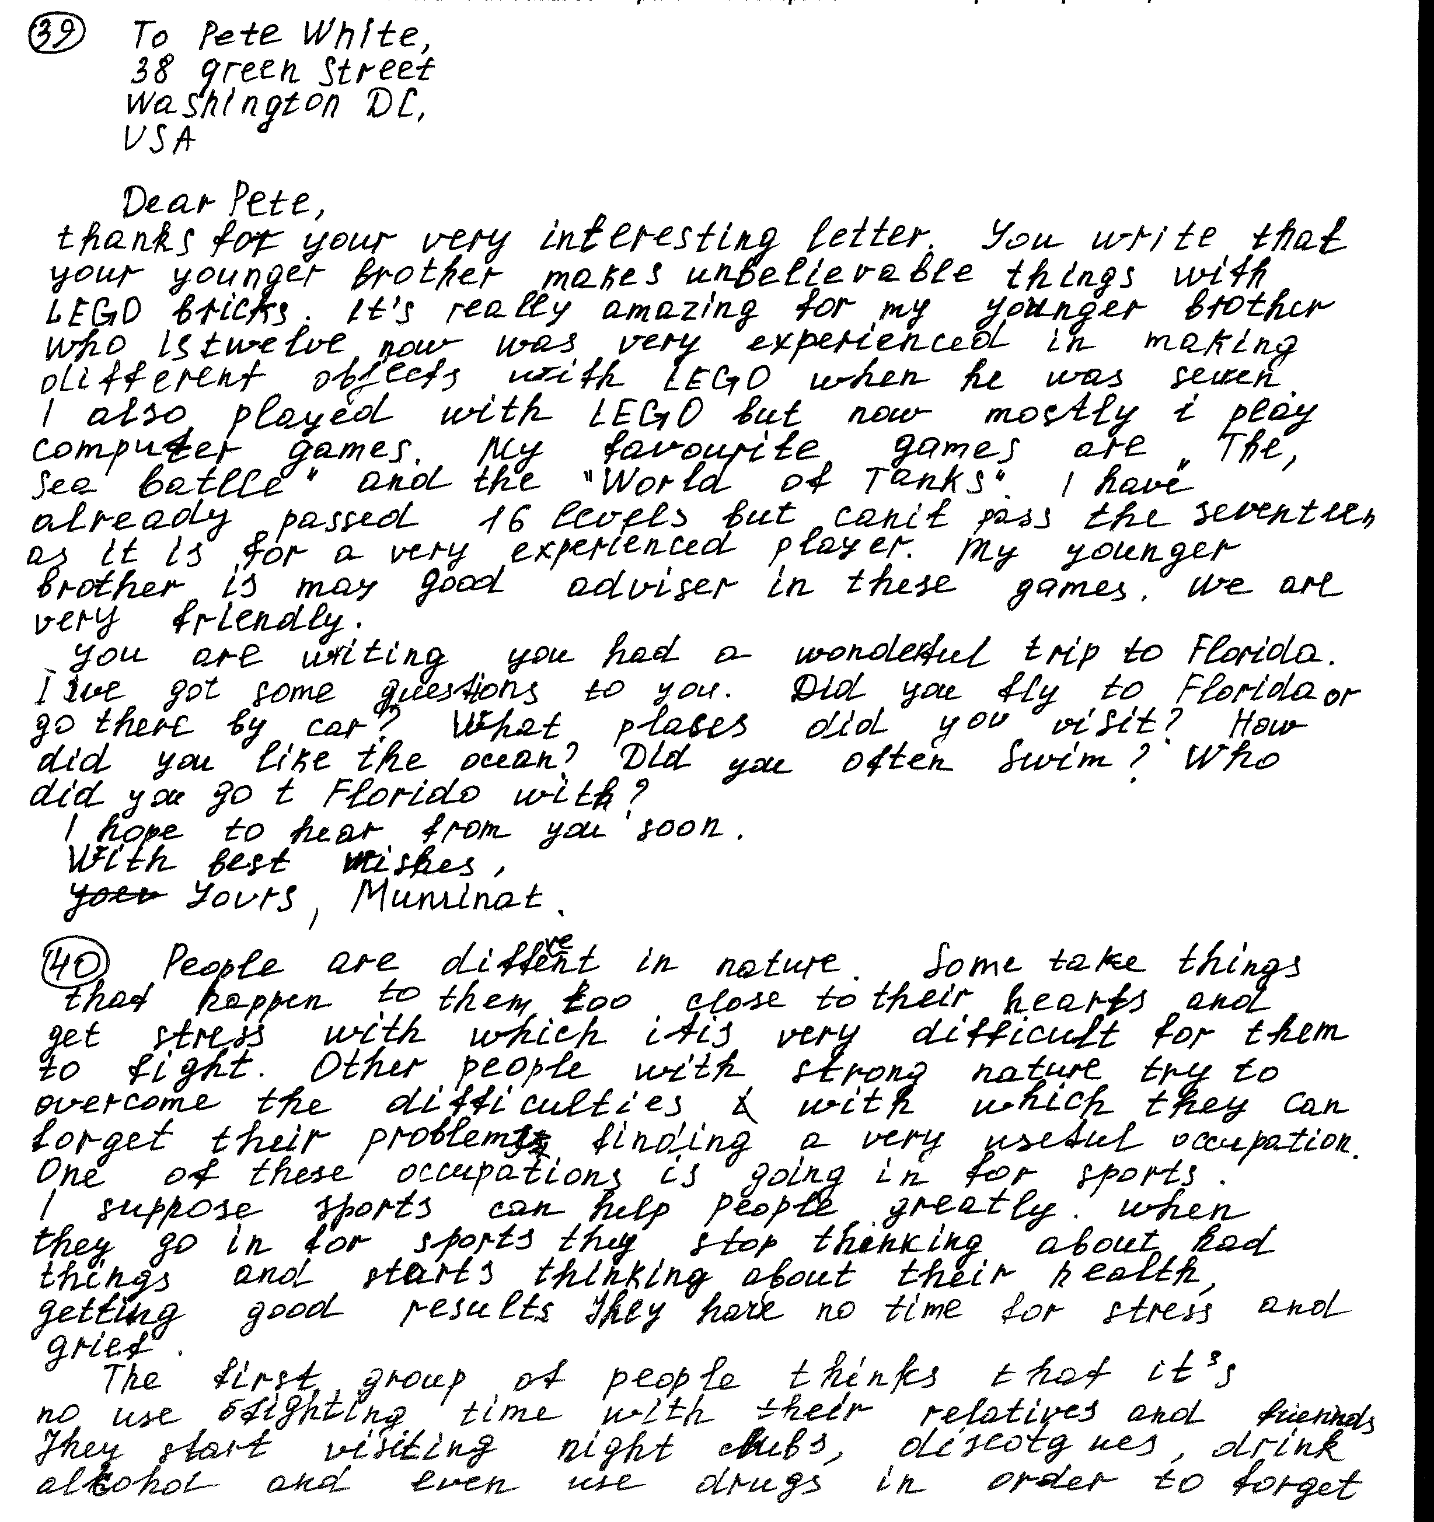 39 To Pete White,
38 green Street
Washington DC,
USA
Dear Pete,
thanks for your very interesting letter. You write that
your younger brother makes unbelievable things with
LEGO bricks. It's really amazing for my younger brother
who is twelve now was very experienced in making
different objects with LEGO when he was seven.
I also played with LEGO but now mostly i play
computer games. My favourite games are "The
Sea batlle" and the "World of Tanks". I have
already passed 16 levels but can't pass the seventeen
as it is for a very experienced player. My younger
brother is may good adviser in these games. We are
very friendly.
You are writing you had a wonderful trip to Florida.
I've got some questions to you. Did you fly to Florida or
go there by car? What plases did you visit? How
did you like the ocean? Did you often swim? Who
did you go t Florido with?
I hope to hear from you soon.
With best wishes,
Yours, Muminat.
40 People are different in nature. Some take things
that happen to them too close to their hearts and
get stress with which it is very difficult for them
to fight. Other people with strong nature try to
overcome the difficulties with which they can
forget their problems finding a very useful occupation.
One of these occupations is going in for sports.
I suppose sports can help people greatly. When
they go in for sports they stop thinking about bad
things and starts thinking about their health,
getting good results. They have no time for stress and
grief.
The first group of people thinks that it's
no use fighting time with their relatives and friends
They start visiting night clubs, discotques, drink
alkohol and even use drugs in order to forget